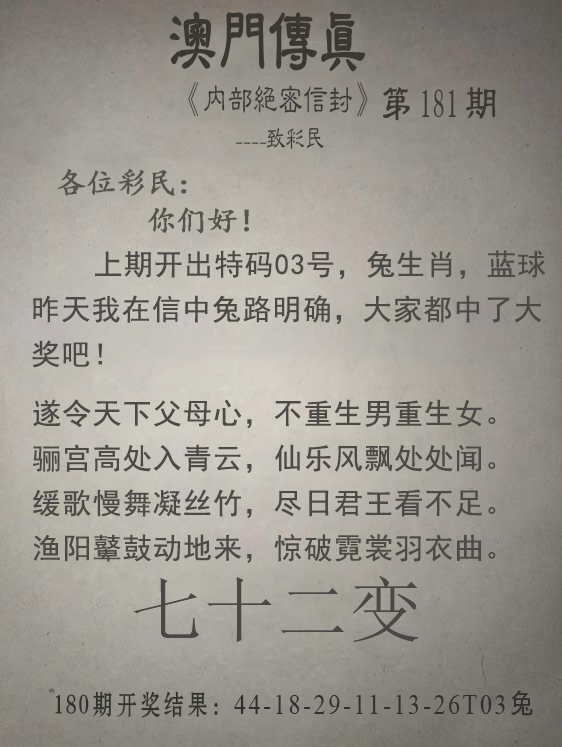 澳門傳眞
《内部絕密信封》第181期
----致彩民
各位彩民：
你们好！
上期开出特码03号，兔生肖，蓝球
昨天我在信中兔路明确，大家都中了大
奖吧！
遂令天下父母心，不重生男重生女。
骊宫高处入青云，仙乐风飘处处闻。
缓歌慢舞凝丝竹，尽日君王看不足。
渔阳鼙鼓动地来，惊破霓裳羽衣曲。
七十二变
180期开奖结果：44-18-29-11-13-26T03兔